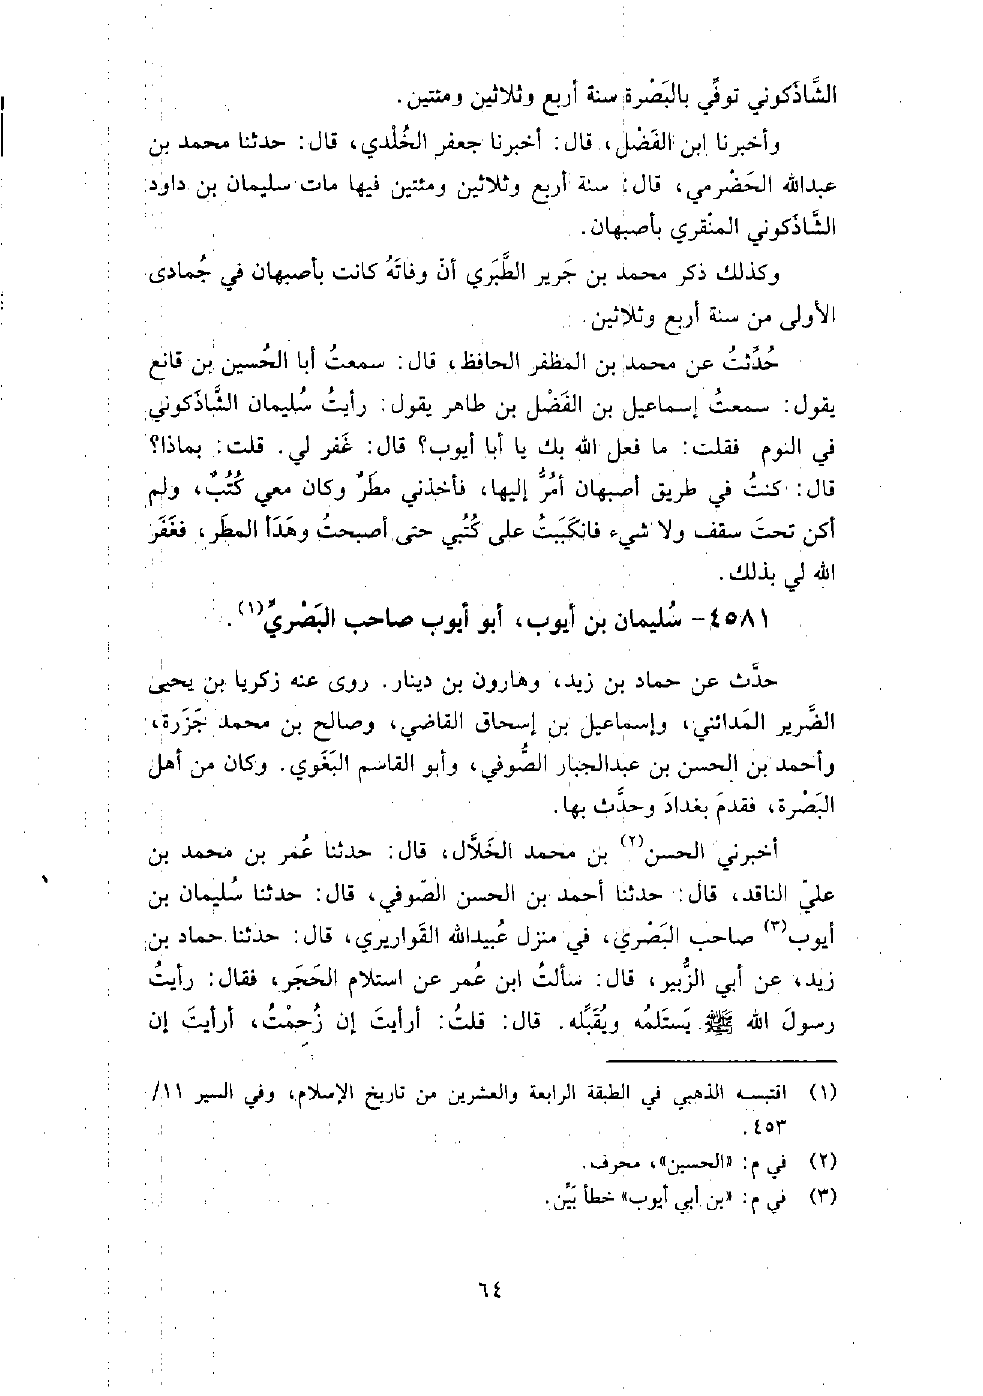 الشَّاذَكوني توفِّي بالبَصْرة سنة أربع وثلاثين ومئتين.
وأخبرنا ابن الفَضْل، قال: أخبرنا جعفر الخُلْدي، قال: حدثنا محمد بن
عبدالله الحَضْرمي، قال: سنة أربع وثلاثين ومئتين فيها مات سليمان بن داود
الشَّاذَكوني المنْقري بأصبهان.
وكذلك ذكر محمد بن جَرير الطَّبَري أنّ وفاتَهُ كانت بأصبهان في جُمادى
الأولى من سنة أربع وثلاثين.
حُدِّثتُ عن محمد بن المظفر الحافظ، قال: سمعتُ أبا الحُسين بن قانع
يقول: سمعتُ إسماعيل بن الفَضْل بن طاهر يقول: رأيتُ سُليمان الشَّاذَكوني
في النوم فقلت: ما فعل الله بك يا أبا أيوب؟ قال: غَفر لي. قلت: بماذا؟
قال: كنتُ في طريق أصبهان أمُرُّ إليها، فأخذني مطَرٌ وكان معي كُتُبٌ، ولم
أكن تحتَ سقف ولا شيء فانكَبَبتُ على كُتُبي حتى أصبحتُ وهَدَأ المطَر، فغَفَر
الله لي بذلك.
٤٥٨١- سُليمان بن أيوب، أبو أيوب صاحب البَصْريِّ(١).
حدَّث عن حماد بن زيد، وهارون بن دينار. روى عنه زكريا بن يحيى
الضَّرير المَدائني، وإسماعيل بن إسحاق القاضي، وصالح بن محمد جَزَرة،
وأحمد بن الحسن بن عبدالجبار الصُّوفي، وأبو القاسم البَغَوي. وكان من أهل
البَصْرة، فقدمَ بغدادَ وحدَّث بها.
أخبرني الحسن(٢) بن محمد الخَلَّال، قال: حدثنا عُمر بن محمد بن
عليّ الناقد، قال: حدثنا أحمد بن الحسن الصّوفي، قال: حدثنا سُليمان بن
أيوب(٣) صاحب البَصْري، في منزل عُبيدالله القَواريري، قال: حدثنا حماد بن
زيد، عن أبي الزُّبير، قال: سألتُ ابن عُمر عن استلام الحَجَر، فقال: رأيتُ
رسولَ الله ﷺ يَستَلمُه ويُقَبِّله. قال: قلتُ: أرأيتَ إن زُحِمْتُ، أرأيتَ إن
(١) اقتبسه الذهبي في الطبقة الرابعة والعشرين من تاريخ الإسلام، وفي السير ١١/
٤٥٣.
(٢) في م: «الحسين»، محرف.
(٣) في م: «بن أبي أيوب» خطأ بَيِّن.
٦٤